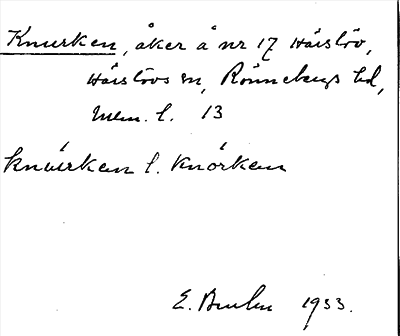 Knurken, åker å nr 17 Härslöv,
Härslövs sn, Rönnebergs hd,
Mlm. l. 13
knúrken l. knórken
E. Bruhn 1933.